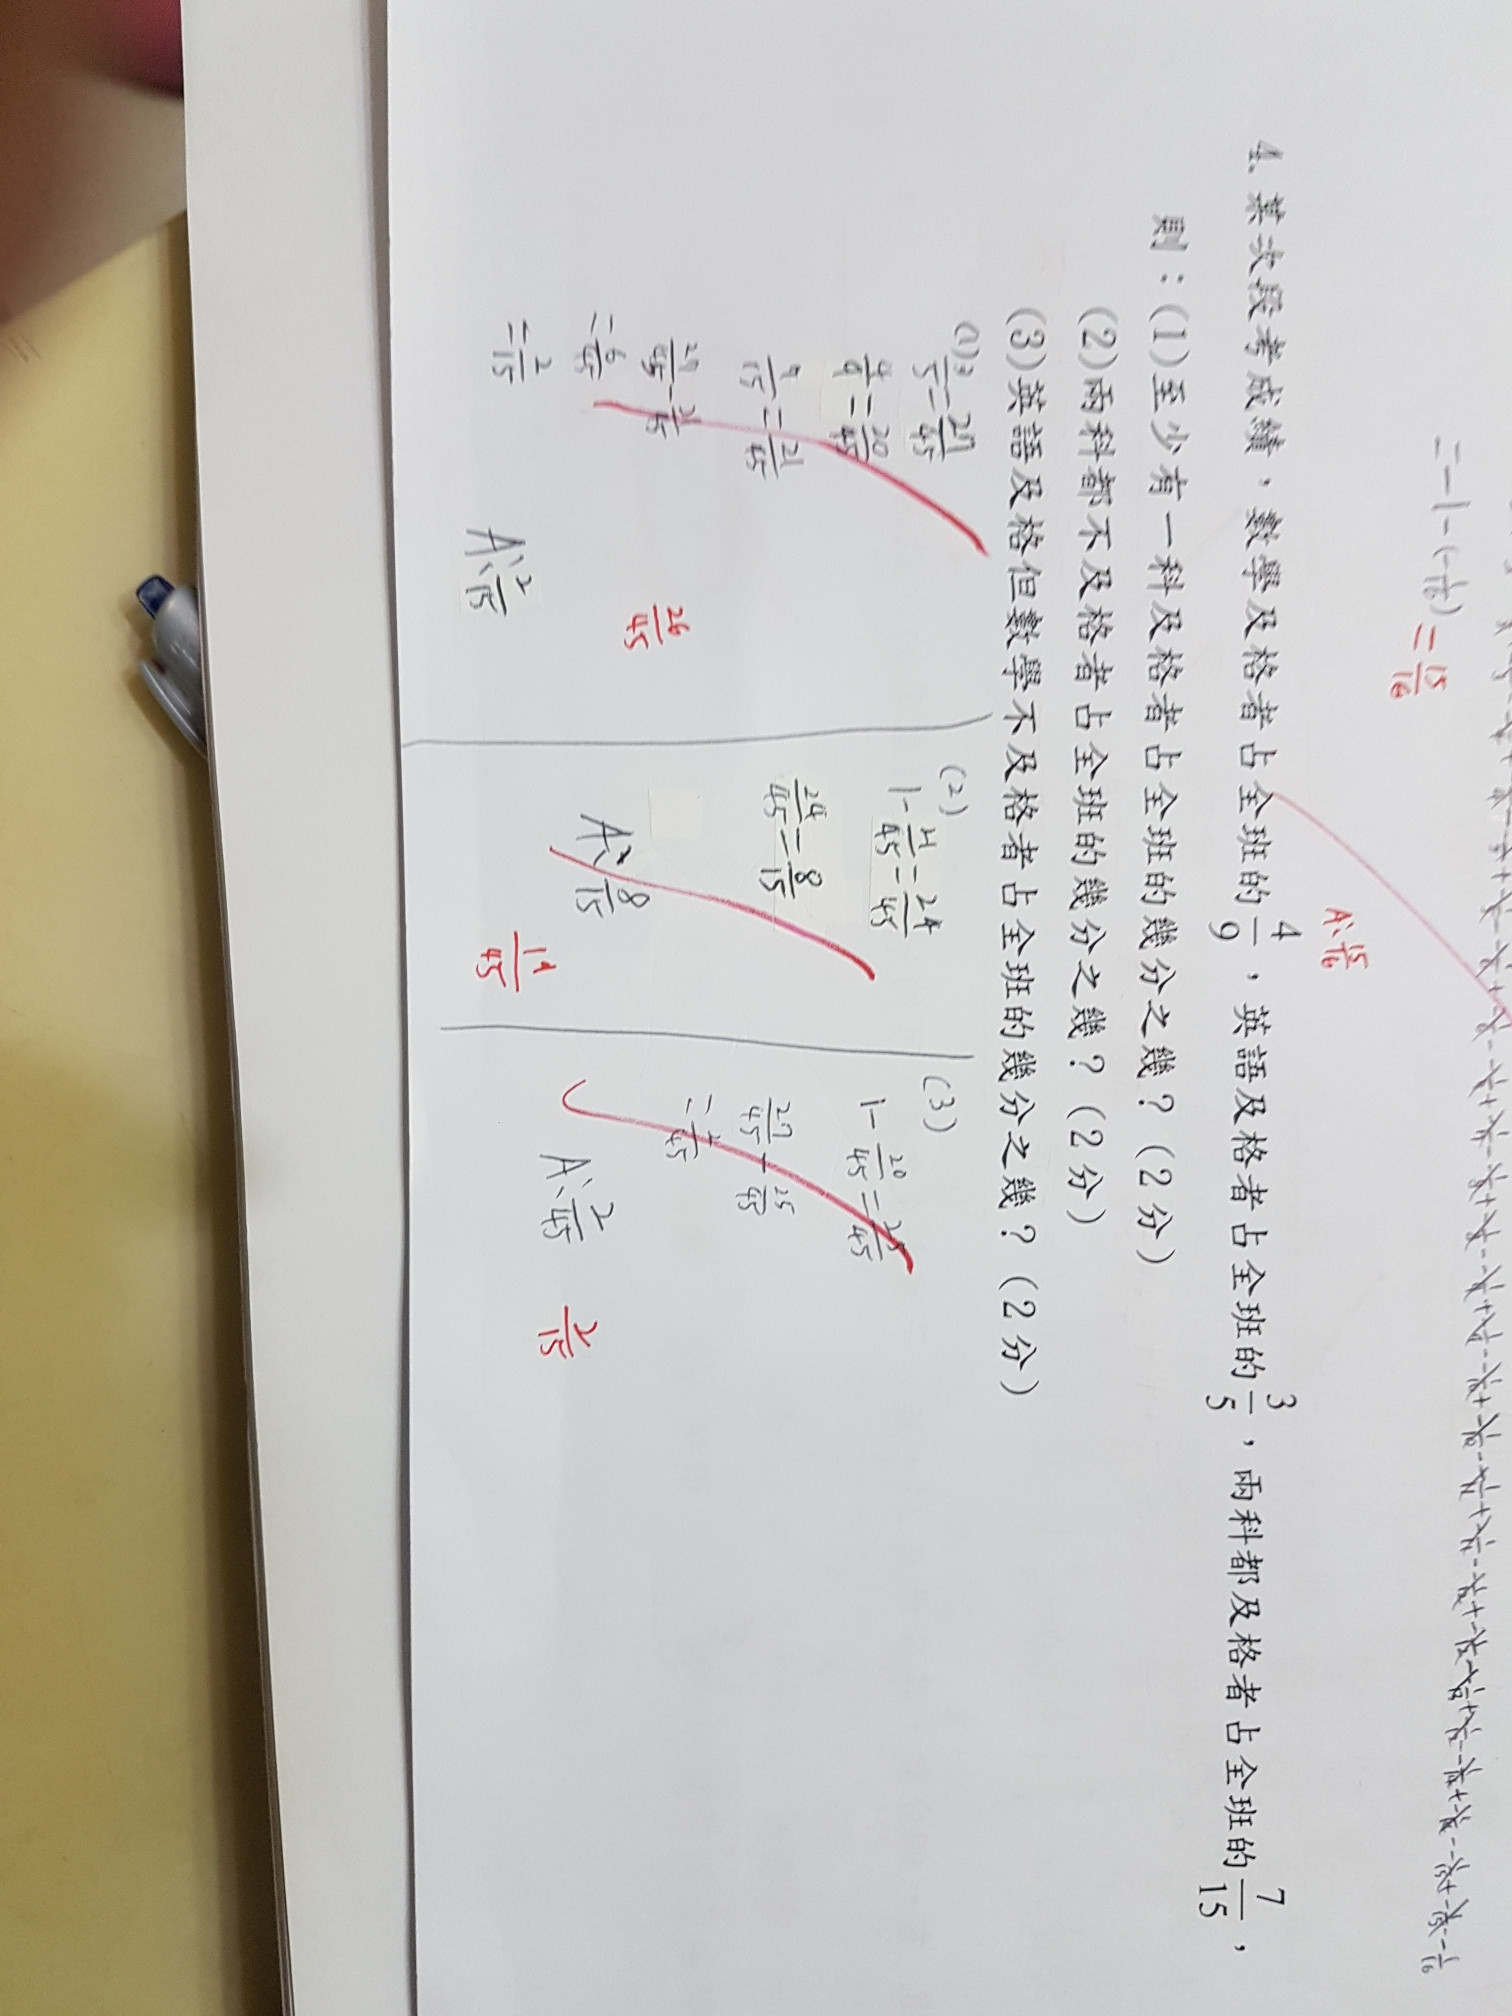 =-1-(-1/16)=15/16
A:15/16
4. 某次段考成績，數學及格者占全班的4/9，英語及格者占全班的3/5，兩科都及格者占全班的7/15，
則：(1)至少有一科及格者占全班的幾分之幾？(2分)
(2)兩科都不及格者占全班的幾分之幾？(2分)
(3)英語及格但數學不及格者占全班的幾分之幾？(2分)
(1) 3/5=27/45
4/9=20/45
7/15=21/45
27/45-21/45
=6/45
=2/15
A:2/15
26/45
(2)
1-21/45=24/45
24/45=8/15
A:8/15
19/45
(3)
1-20/45=25/45
27/45-25/45
=2/45
A:2/45
2/15